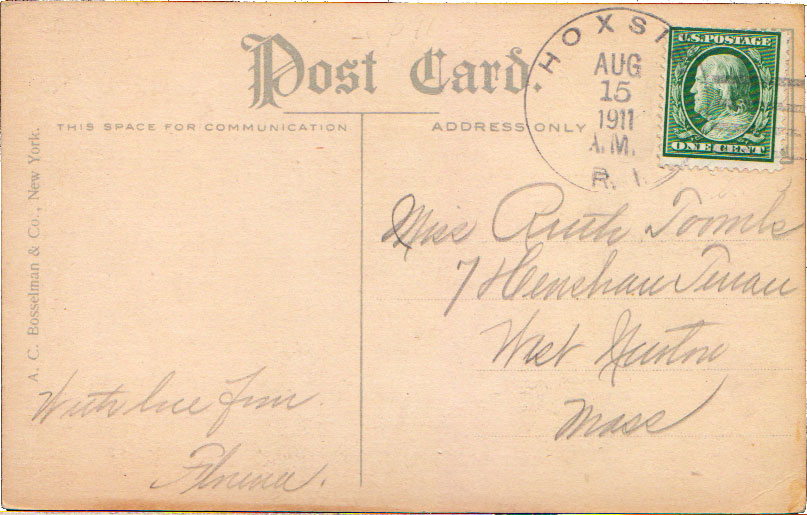 Post Card.
THIS SPACE FOR COMMUNICATION
ADDRESS ONLY
HOXSI
AUG
15
1911
A.M.
R. I.
U.S. POSTAGE
ONE CENT
A. C. Bosselman & Co., New York.
Miss Ruth Toombs
7 Henshaw Terrace
West Newton
Mass
With love from
Florence.